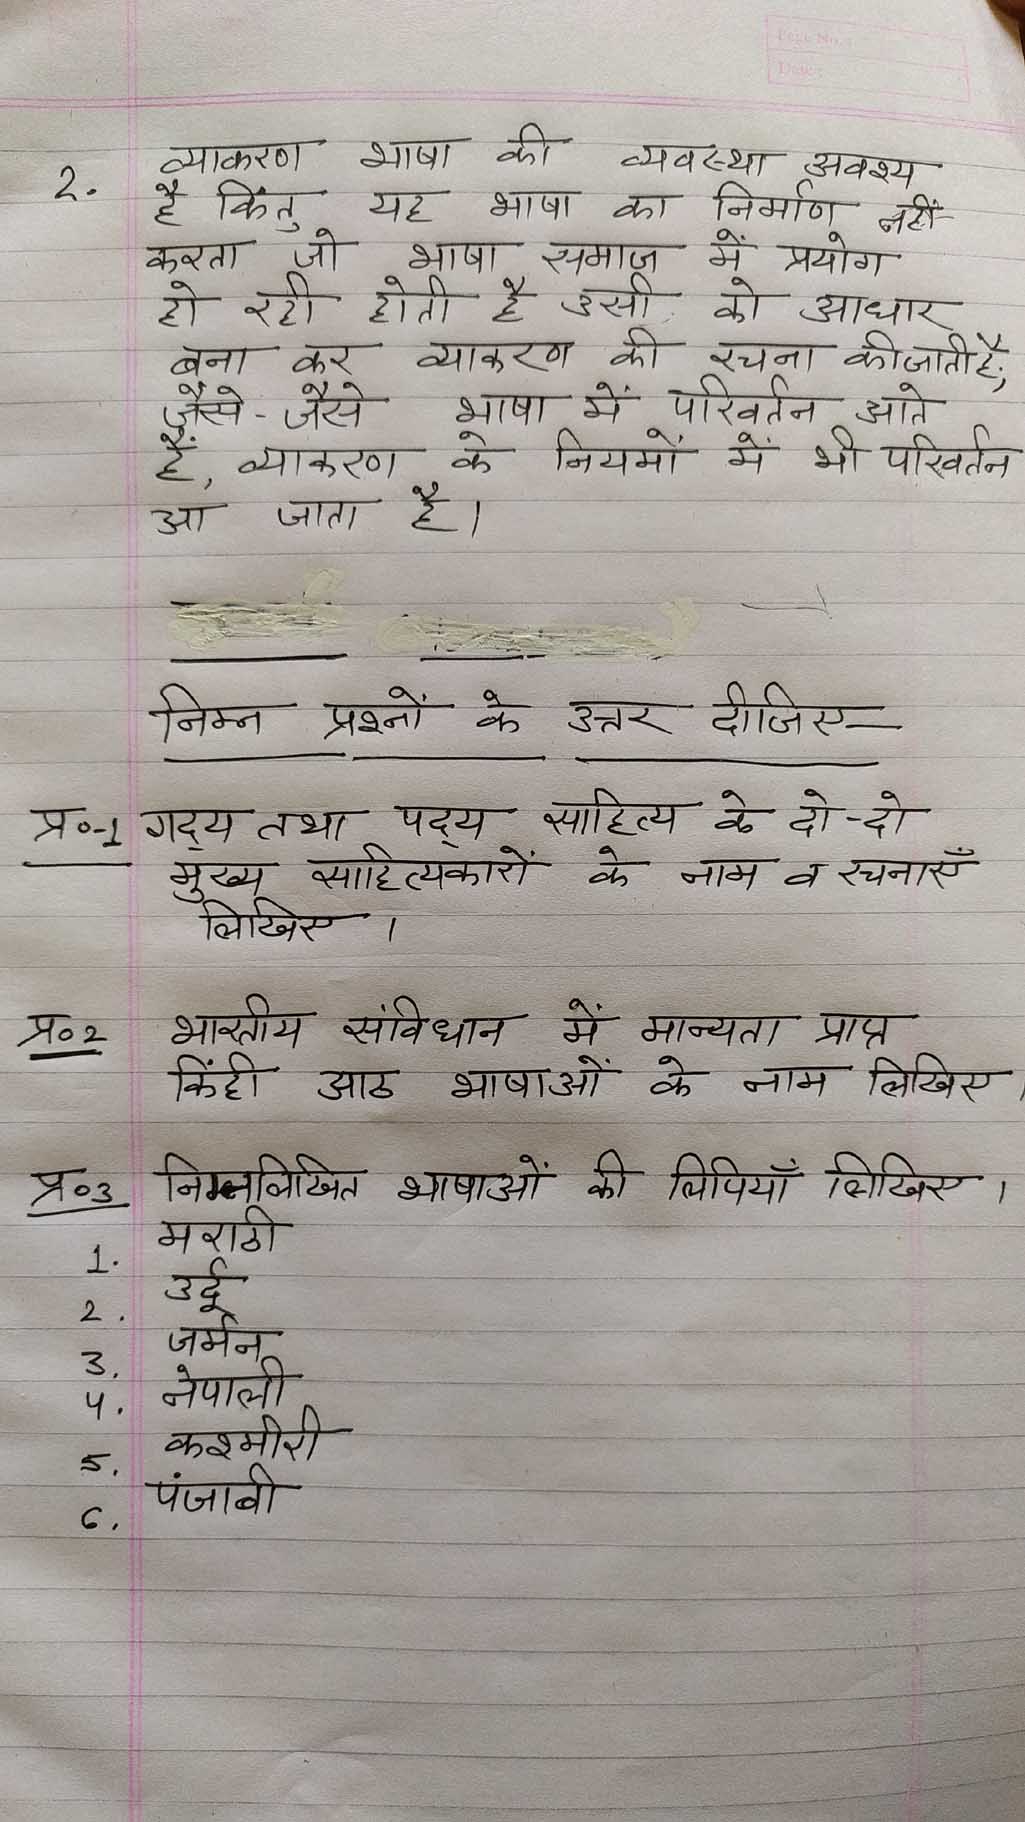 Page No.:
Date:
2. व्याकरण भाषा की व्यवस्था अवश्य
है किंतु यह भाषा का निर्माण नहीं
करता जो भाषा समाज में प्रयोग
हो रही होती है उसी को आधार
बना कर व्याकरण की रचना की जाती है;
जैसे-जैसे भाषा में परिवर्तन आते
हैं, व्याकरण के नियमों में भी परिवर्तन
आ जाता है।
निम्न प्रश्नों के उत्तर दीजिए—
प्र०-1 गद्य तथा पद्य साहित्य के दो-दो
मुख्य साहित्यकारों के नाम व रचनाएँ
लिखिए ।
प्र०2 भारतीय संविधान में मान्यता प्राप्त
किंही आठ भाषाओं के नाम लिखिए ।
प्र०3 निम्नलिखित भाषाओं की लिपियाँ लिखिए ।
1. मराठी
2. उर्दू
3. जर्मन
4. नेपाली
5. कश्मीरी
6. पंजाबी